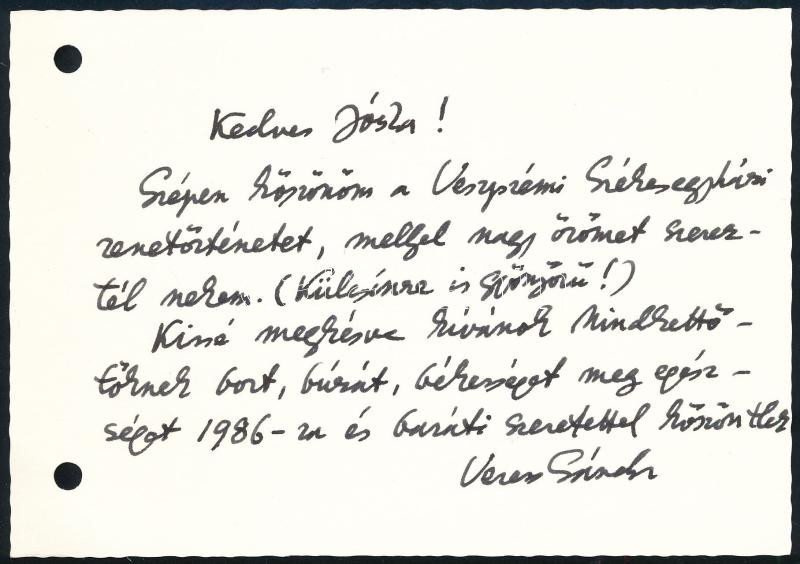 Kedves Jóska!
Szépen köszönöm a Veszprémi Székesegyházi
zenetörténetet, mellyel nagy örömet szerez-
tél nekem. (Külsínre is gyönyörű!)
Kissé megkésve kívánok Mindkettő-
töknek bort, búzát, békességet meg egész-
séget 1986-ra és baráti szeretettel köszöntlek
Veress Sándor